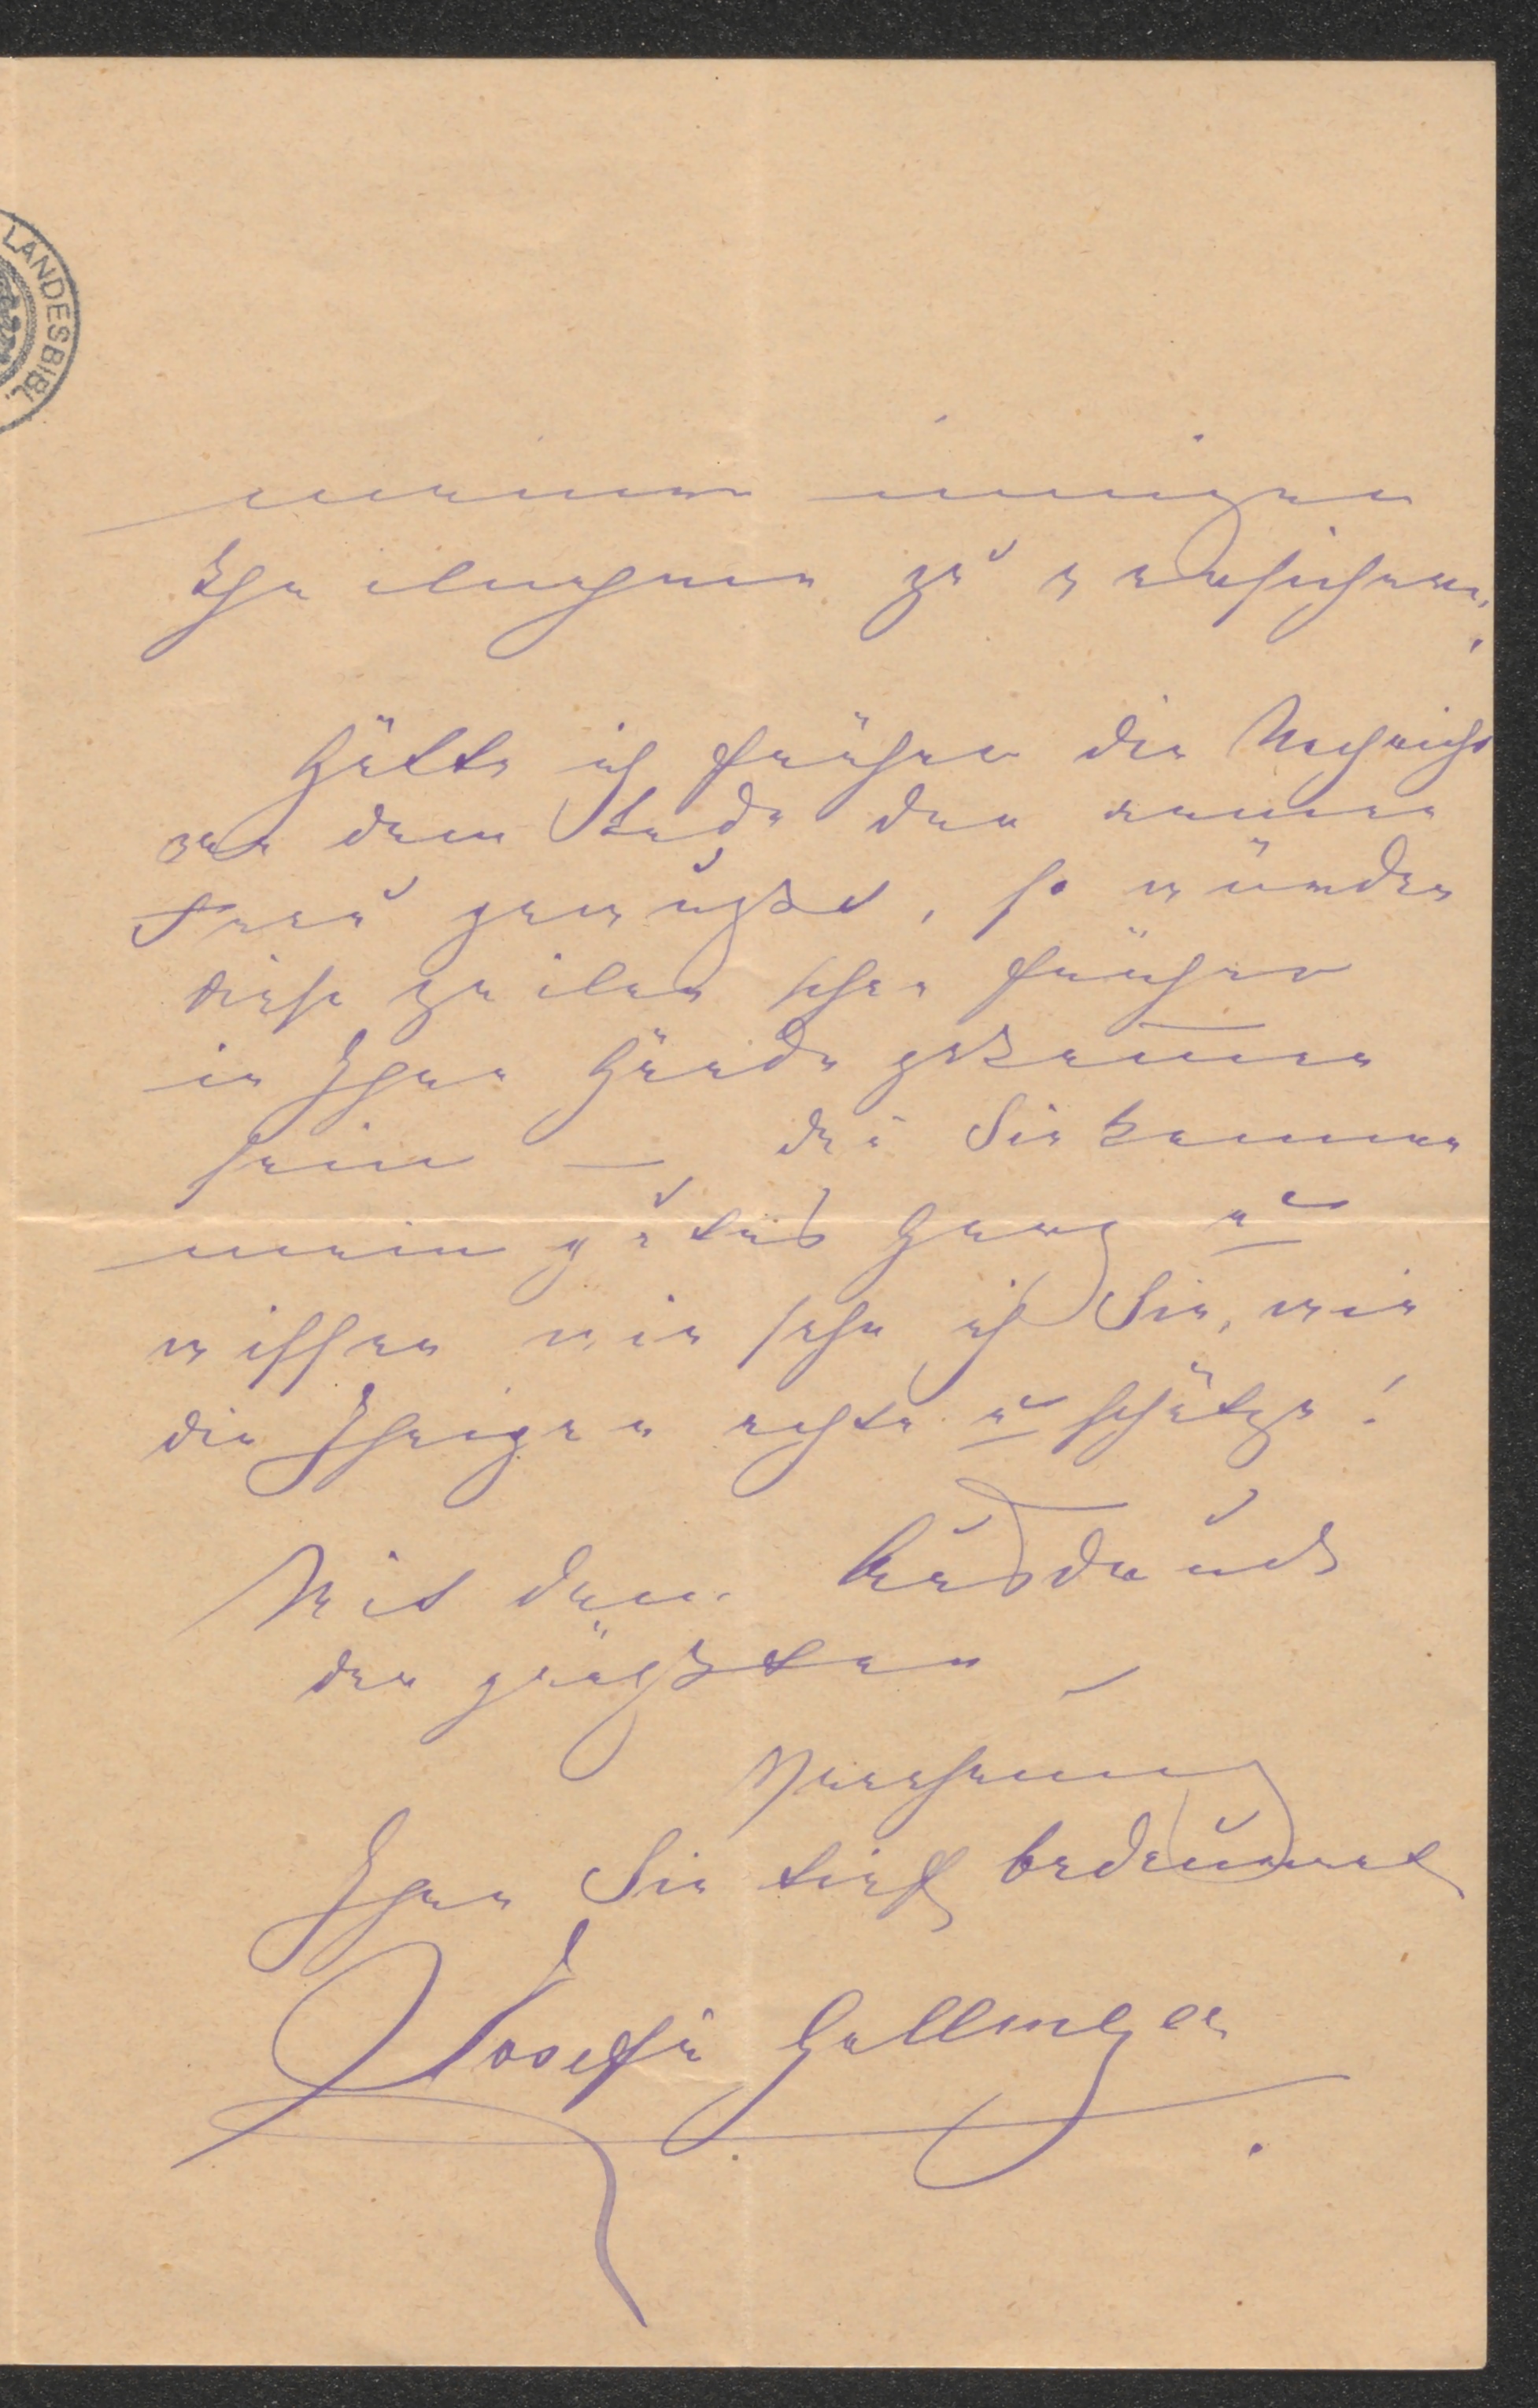 LANDESBIBL.
meiner innigen
Theilnahme zu versichern.
Hätte ich früher die Nachricht
von dem Tode der armen
Frau gewußt, so würden
diese Zeilen schon früher
in Ihre Hände gekom̅en
sein — den Sie kennen
mein gutes Herz u
wissen wie sehr ich Sie, wie
die Ihrigen achte u schätze!
Mit dem Ausdruck
der größten
Verehrung
Ihre Sie tief bedauernde
Josefin Gallmeyer